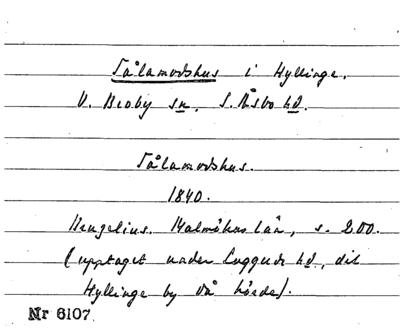 Tålamodshus i Hyllinge.
V. Broby sn, S. Åsbo hd.
Tålamodshus.
1840.
Bengelius. Malmöhus län, s. 200.
(upptaget under Luggude hd, dit
Hyllinge by då hörde).
Nr 6107